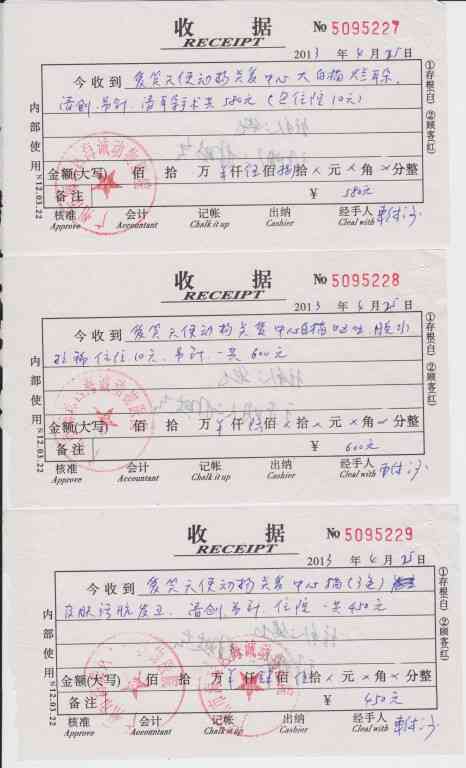 收 据 No 5095227
RECEIPT
2013 年 4 月 25 日
今收到 爱笑天使动物关爱中心 大白猫 耳朵
清创、吊针、清耳手术共580元(包住院10元)
金额(大写) 佰 拾 万 ¥仟 伍佰 捌拾 × 元 × 角 × 分整
备注 ¥ 580元
核准 会计 记帐 出纳 经手人
Approve Accountant Chalk it up Cashier Cleal with
内部使用 N12.03.22
①存根(白) ②顾客(红)
收 据 No 5095228
RECEIPT
2013 年 4 月 25 日
今收到 爱笑天使动物关爱中心 猫 呕吐 脱水
住院10元、吊针、一共600元
金额(大写) 佰 拾 万 ¥仟 陆佰 × 拾 × 元 × 角 × 分整
备注 ¥ 600元
核准 会计 记帐 出纳 经手人
Approve Accountant Chalk it up Cashier Cleal with
内部使用 N12.03.22
①存根(白) ②顾客(红)
收 据 No 5095229
RECEIPT
2013 年 4 月 25 日
今收到 爱笑天使动物关爱中心 猫(3色)
皮肤 清创 吊针 住院 一共450元
金额(大写) 佰 拾 万 ¥仟 肆佰 伍拾 × 元 × 角 × 分整
备注 ¥ 450元
核准 会计 记帐 出纳 经手人
Approve Accountant Chalk it up Cashier Cleal with
内部使用 N12.03.22
①存根(白) ②顾客(红)